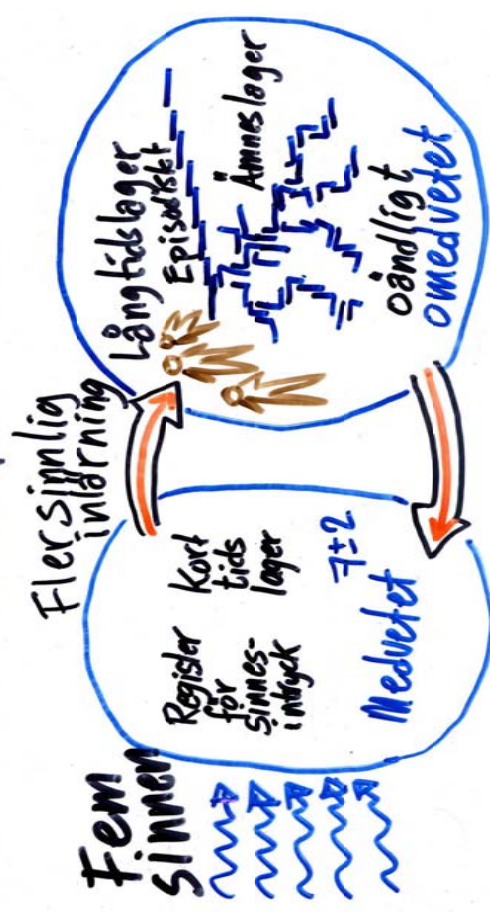 Fem
sinnen
Flersinnlig
inlärning
Register
för
sinnes-
intryck
Kort
tids
lager
7±2
Medvetet
Långtidslager
Episodiskt
Ämneslager
oändligt
omedvetet